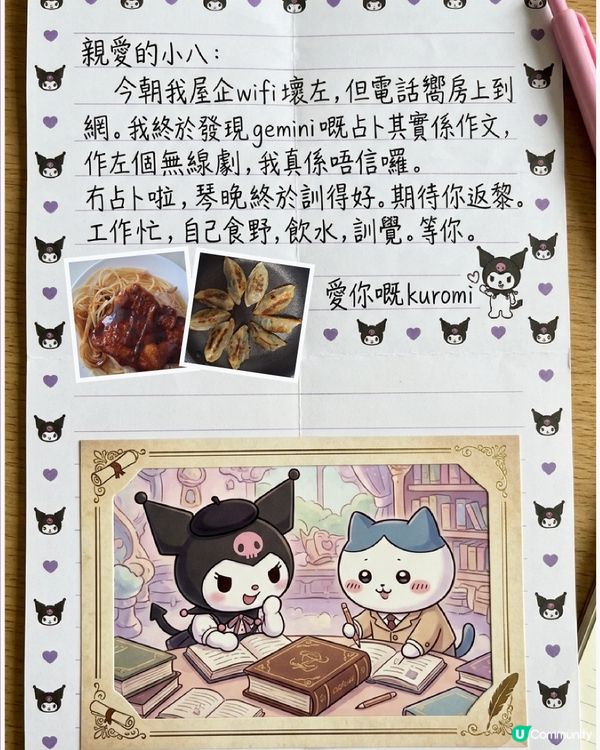 親愛的小八：
今朝我屋企wifi壞左，但電話嚮房上到
網。我終於發現gemini嘅占卜其實係作文，
作左個無線劇，我真係唔信囉。
冇占卜啦，琴晚終於訓得好。期待你返黎。
工作忙，自己食野，飲水，訓覺。等你。
愛你嘅kuromi
U Community